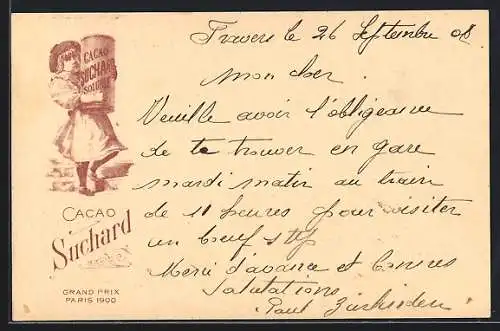 Travers le 26 Septembre 08
mon cher
Veuille avoir l'obligeance
de te trouver en gare
mardi matin au train
de 11 heures pour visiter
un boeuf stp
Merci d'avance et bonnes
Salutations
Paul
CACAO
SUCHARD
SOLUBLE
CACAO
Suchard
GRAND PRIX
PARIS 1900